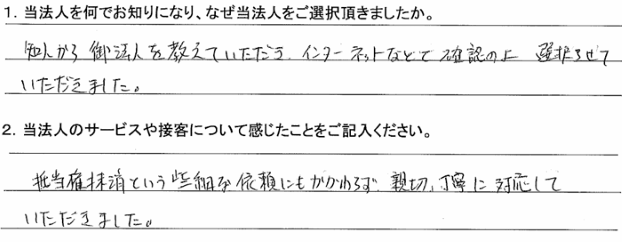 1. 当法人を何でお知りになり、なぜ当法人をご選択頂きましたか。
知人から御法人を教えていただき、インターネットなどで確認の上 選択させて
いただきました。
2. 当法人のサービスや接客について感じたことをご記入ください。
抵当権抹消という些細な依頼にもかかわらず、親切、丁寧に対応して
いただきました。